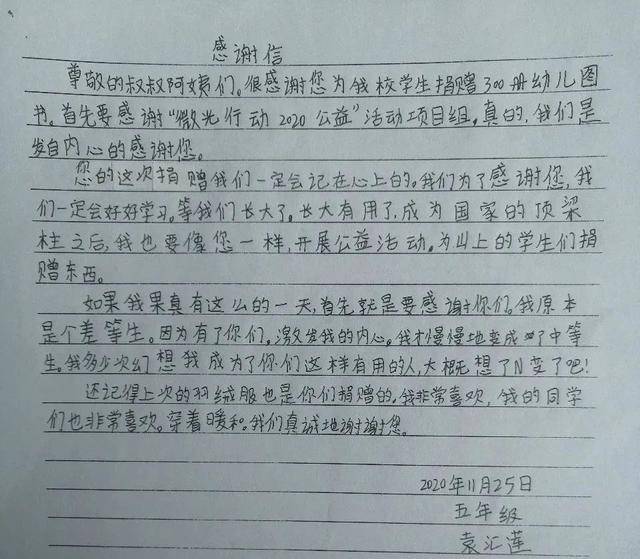 感谢信
尊敬的叔叔阿姨们。很感谢您为我校学生捐赠300册幼儿图
书。首先要感谢“微光行动2020公益”活动项目组。真的，我们是
发自内心的感谢您。
您的这次捐赠我们一定会记在心上的。我们为了感谢您，我
们一定会好好学习。等我们长大了。长大有用了，成为国家的顶梁
柱之后，我也要像您一样，开展公益活动。为山上的学生们捐
赠东西。
如果我果真有这么的一天，首先就是要感谢你们。我原本
是个差等生。因为有了你们。激发我的内心。我才慢慢地变成了中等
生。我多少次幻想我成为了你们这样有用的人，大概想了N变了吧！
还记得上次的羽绒服也是你们捐赠的。我非常喜欢，我的同学
们也非常喜欢。穿着暖和。我们真诚地谢谢您。
2020年11月25日
五年级
袁汇莲